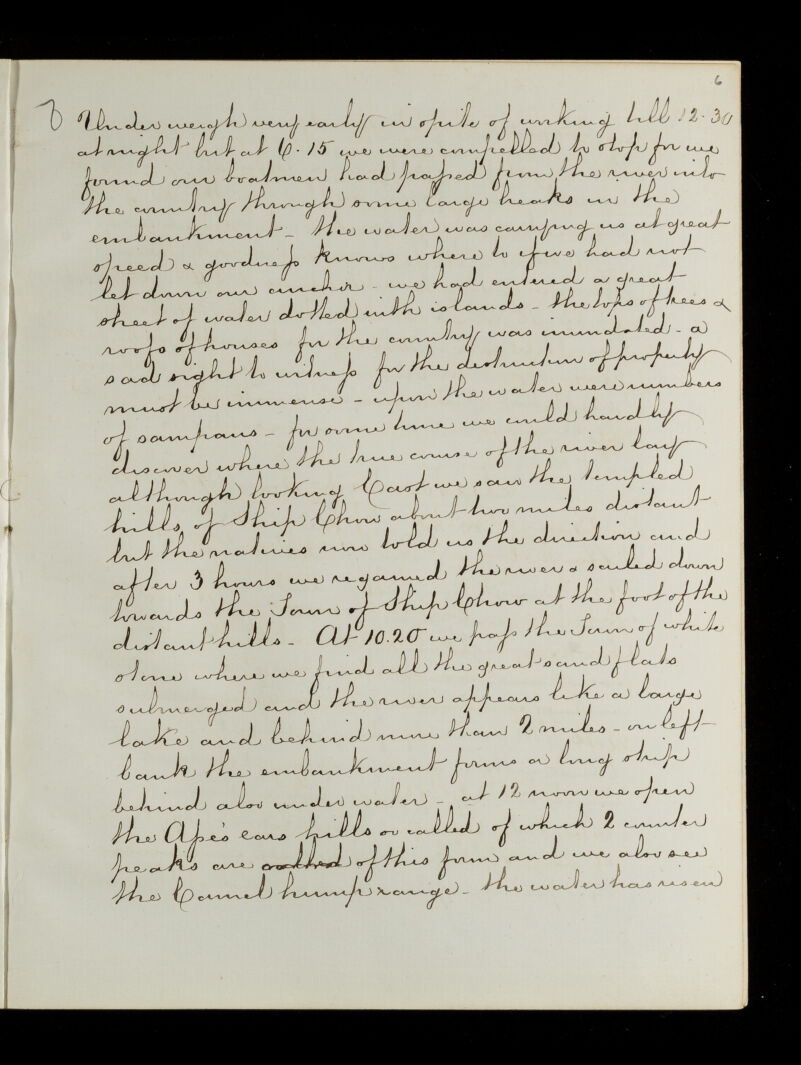 6
7 Under weigh very early in spite of working till 12.30
at night but at 6.15 we were compelled to stop for we
found our boatmen had passed from the river into
the country through some large breaks in the
embankment - the water was carrying us at great
speed & goodness knows where to if we had not
let down our anchor - we had entered a great
sheet of water dotted with islands - the tops of trees &
roofs of houses for the country was inundated - a
sad sight to witness for the destruction of property
must be immense - upon the water were numbers
of sampans - for some time we could hardly
discover where the true course of the river lay
although looking East we saw the templed
hills of Ship Chow about two miles distant
but the natives now told us the direction and
after 3 hours we regained the river & sailed down
towards the Town of Ship Chow at the foot of the
distant hills - At 10.20 we pass the Town of white
stone where we find all the great sand flats
submerged and the river appears like a large
lake and behind more than 2 miles - on left
bank the embankment forms a long strip
behind also under water - at 12 noon we open
the Ape's ears hills so called of which 2 counter
peaks are called of this form and we also see
the Camel hump range - the water has risen